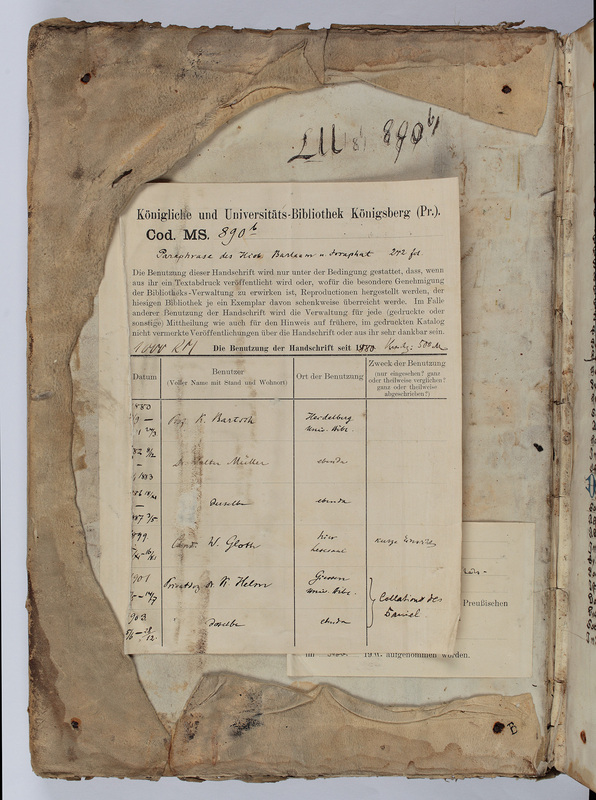 890 b
Königliche und Universitäts-Bibliothek Königsberg (Pr.).
Cod. MS. 890 b
Paraphrase des Hiob Barlaam u Josaphat 272 fol
Die Benutzung dieser Handschrift wird nur unter der Bedingung gestattet, dass, wenn
aus ihr ein Textabdruck veröffentlicht wird oder, wofür die besondere Genehmigung
der Bibliotheks-Verwaltung zu erwirken ist, Reproductionen hergestellt werden, der
hiesigen Bibliothek je ein Exemplar davon schenkweise überreicht werde. Im Falle
anderer Benutzung der Handschrift wird die Verwaltung für jede (gedruckte oder
sonstige) Mittheilung wie auch für den Hinweis auf frühere, im gedruckten Katalog
nicht vermerkte Veröffentlichungen über die Handschrift oder aus ihr sehr dankbar sein.
1000 RM Die Benutzung der Handschrift seit 1880
Datum
Benutzer
(Voller Name mit Stand und Wohnort)
Ort der Benutzung
Zweck der Benutzung
(nur eingesehen? ganz
oder theilweise verglichen?
ganz oder theilweise
abgeschrieben?)
883
Prof. K. Bartsch
Heidelberg
Univ. Bibl.
Dr. Walter Müller
ebenda
1883
derselbe
ebenda
899
Cand. W. Gloth
hier
Lesesaal
901
Privatdoz Dr. K. Helm
Giessen
Univ. Bibl.
Collation des
Daniel
903
derselbe
ebenda
Preußischen
19 aufgenommen worden.